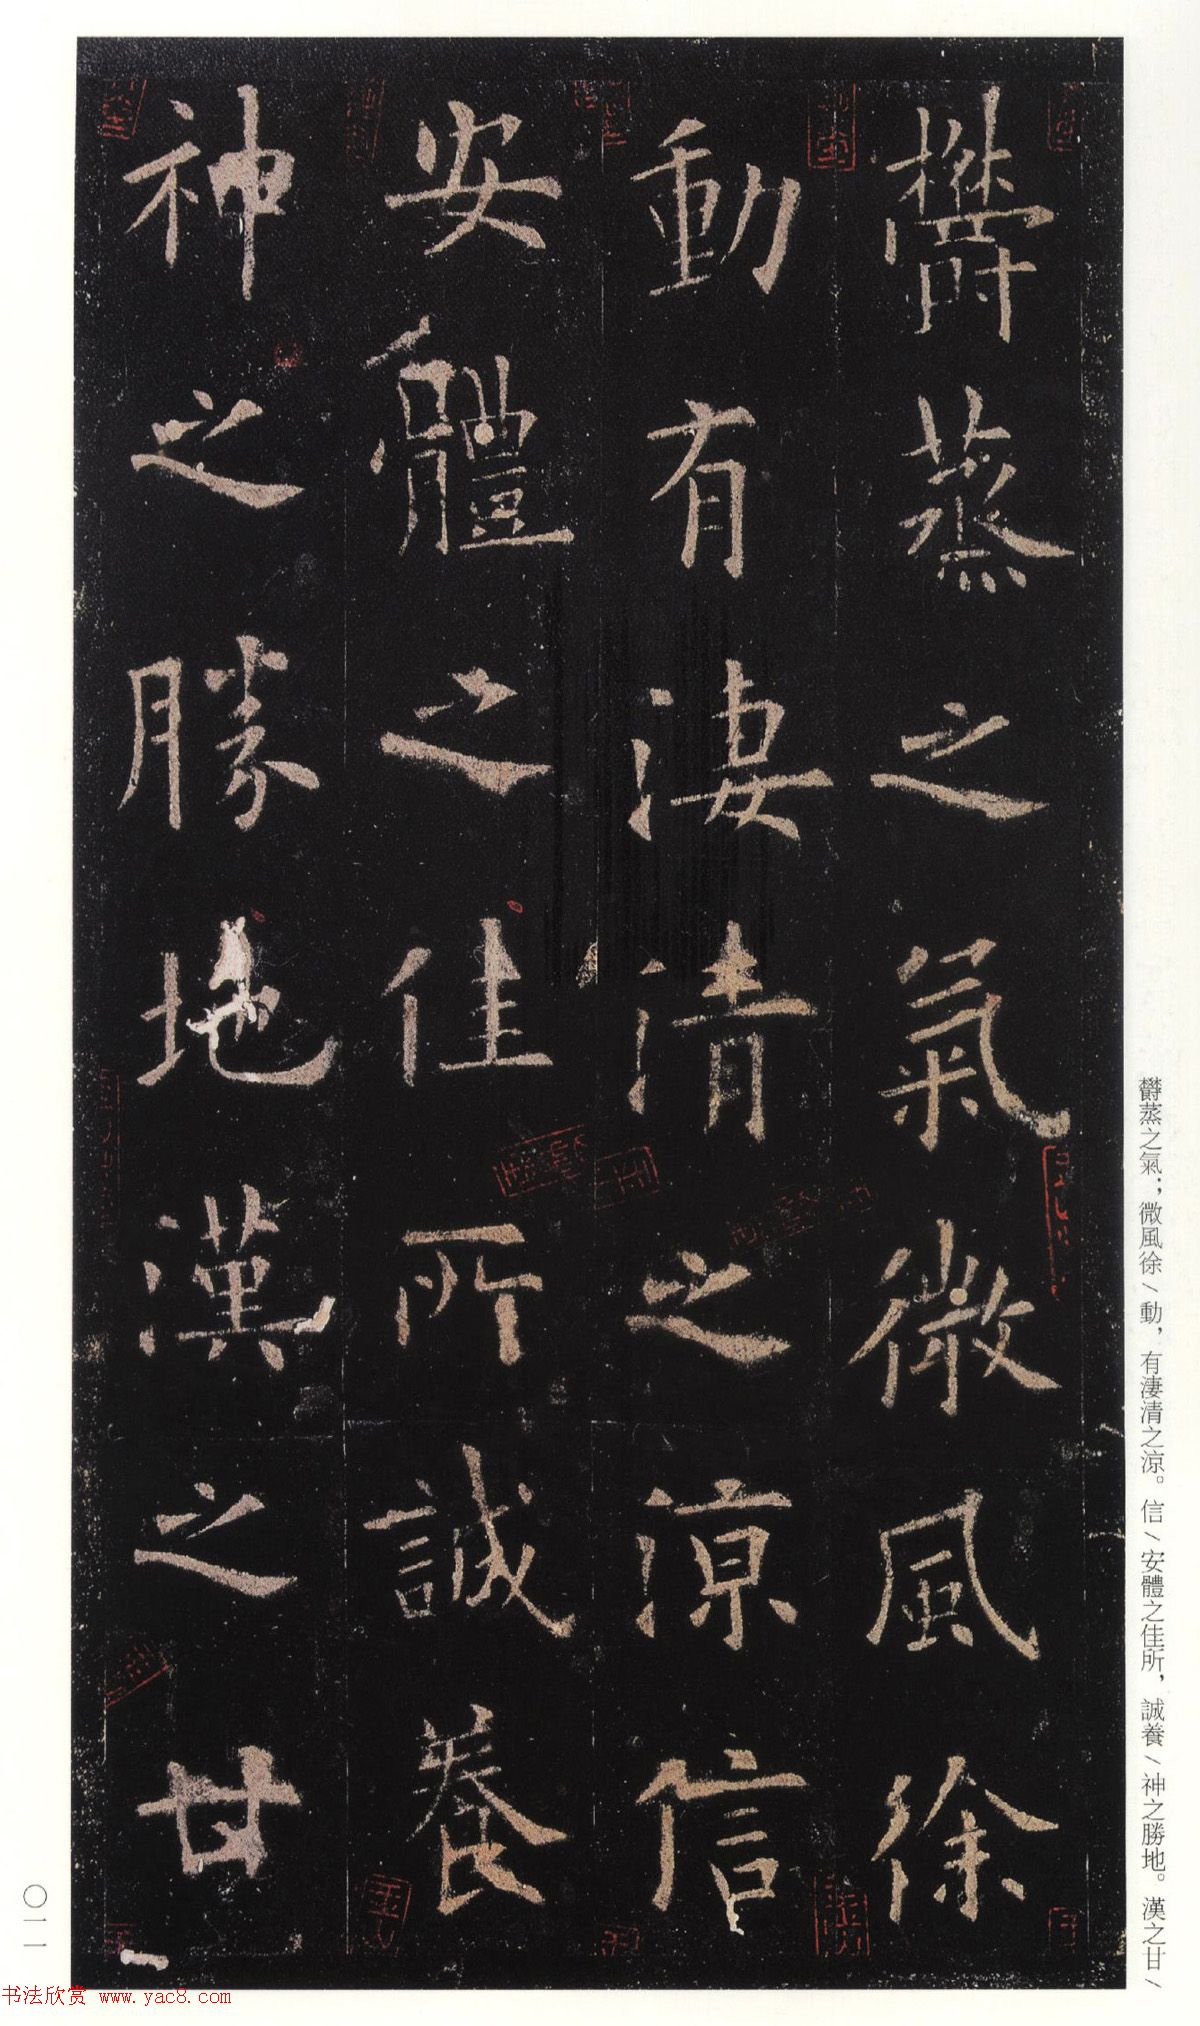 欝蒸之氣微風徐
動有淒清之涼信
安體之佳所誠養
神之勝地漢之甘
欝蒸之氣；微風徐／動，有淒清之涼。信／安體之佳所，誠養／神之勝地。漢之甘／
〇一一
书法欣赏 www.yac8.com